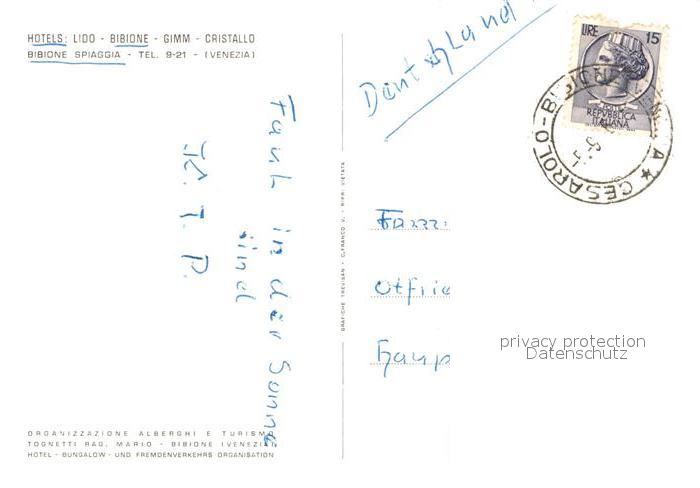 HOTELS: LIDO - BIBIONE - GIMM - CRISTALLO
BIBIONE SPIAGGIA - TEL. 9-21 - (VENEZIA)
Faul in der Sonne
sind
K. T. P.
ORGANIZZAZIONE ALBERGHI E TURISMO
TOGNETTI RAG. MARIO - BIBIONE (VENEZIA)
HOTEL - BUNGALOW - UND FREMDENVERKEHRS ORGANISATION
GRAFICHE TREVISAN - C/FRANCO V. - RIPR. VIETATA
Deutschland
LIRE 15
POSTE
REPVBBLICA
ITALIANA
CESAROLO-BIBIONE
Otfrie
Haup
privacy protection
Datenschutz